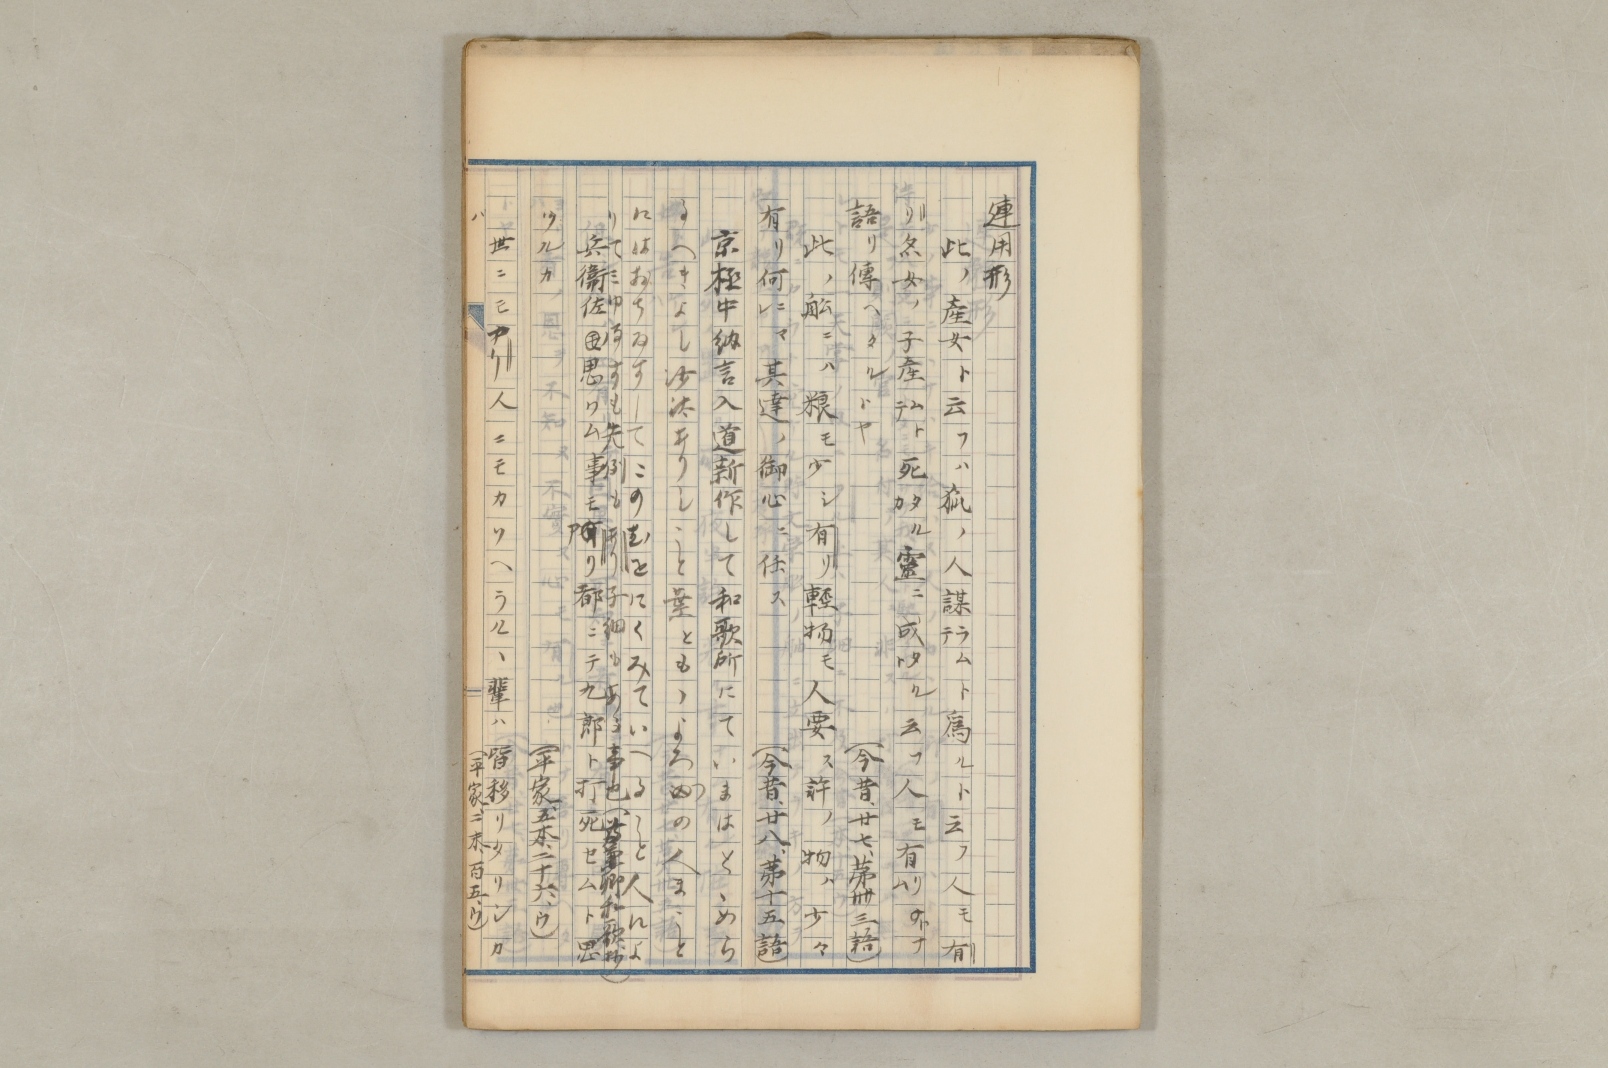 連用形
此ノ産女ト云フハ狐ノ人謀ラムトテ為ルト云フ人モ有
リ亦女ノ子産ムトテ死タルカ靈ニ成タルト云フ人モ有リトナム
語リ傳ヘタルトヤ
(今昔、廿七、第卌三語)
此ノ船ニハ粮モ少シ有リ輕物モ人要ス許ノ物ハ少々
有リ何ニマ其達ノ御心ニ任ス
(今昔、廿八、第十五語)
京極中納言入道新作して和歌所にていまはとゝめら
るへきよし沙汰ありしこと葉ともゝよろつの人まこと
におちゐすしてこの
にくみていへること人によ
りて
すも先例も
有り子細もある事也
(
卿和歌抄)
兵衛佐
思ワム事モ
有リ都ニテ九郎ト打死セムト思
ツルカ
(平家、五本、二十六、ウ)
世ニモアリ人ニモカソヘラルヽ輩ハ皆移リタリシカ
ハ
(平家、二末、百五、ウ)